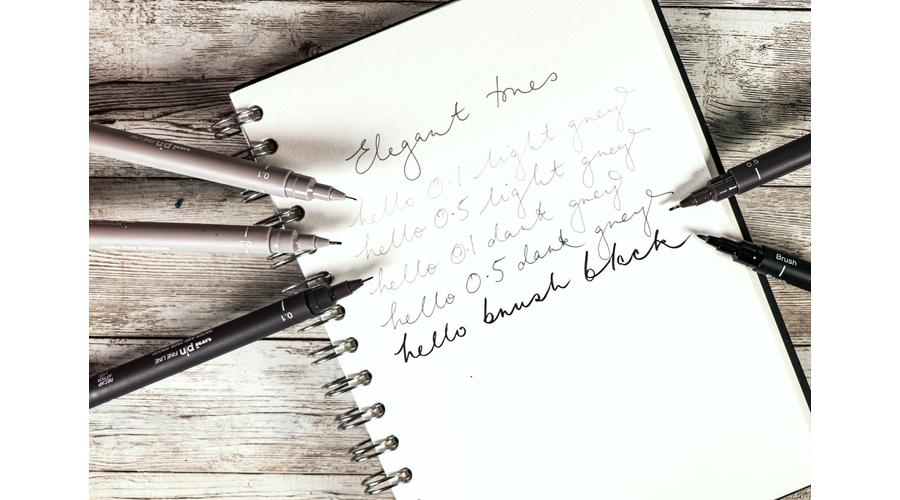 Elegant tones
hello 0.1 light grey
hello 0.5 light grey
hello 0.1 dark grey
hello 0.5 dark grey
hello brush black
0.1
uni pin FINE LINE
0.5
0.1
uni pin FINE LINE
RECAP AFTER
0.5
Brush